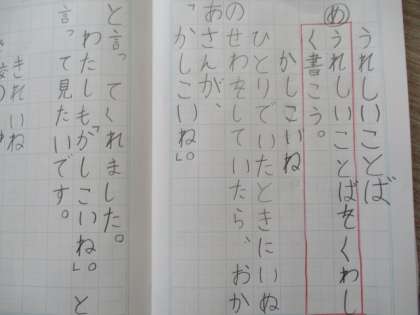 うれしいことば
め
うれしいことばをくわし
く書こう。
かしこいね
ひとりでいたときにいぬ
のせわをしていたら、おか
あさんが、
「かしこいね」。
と言ってくれました。
わたしも「かしこいね」。と
言って見たいです。
きれいね